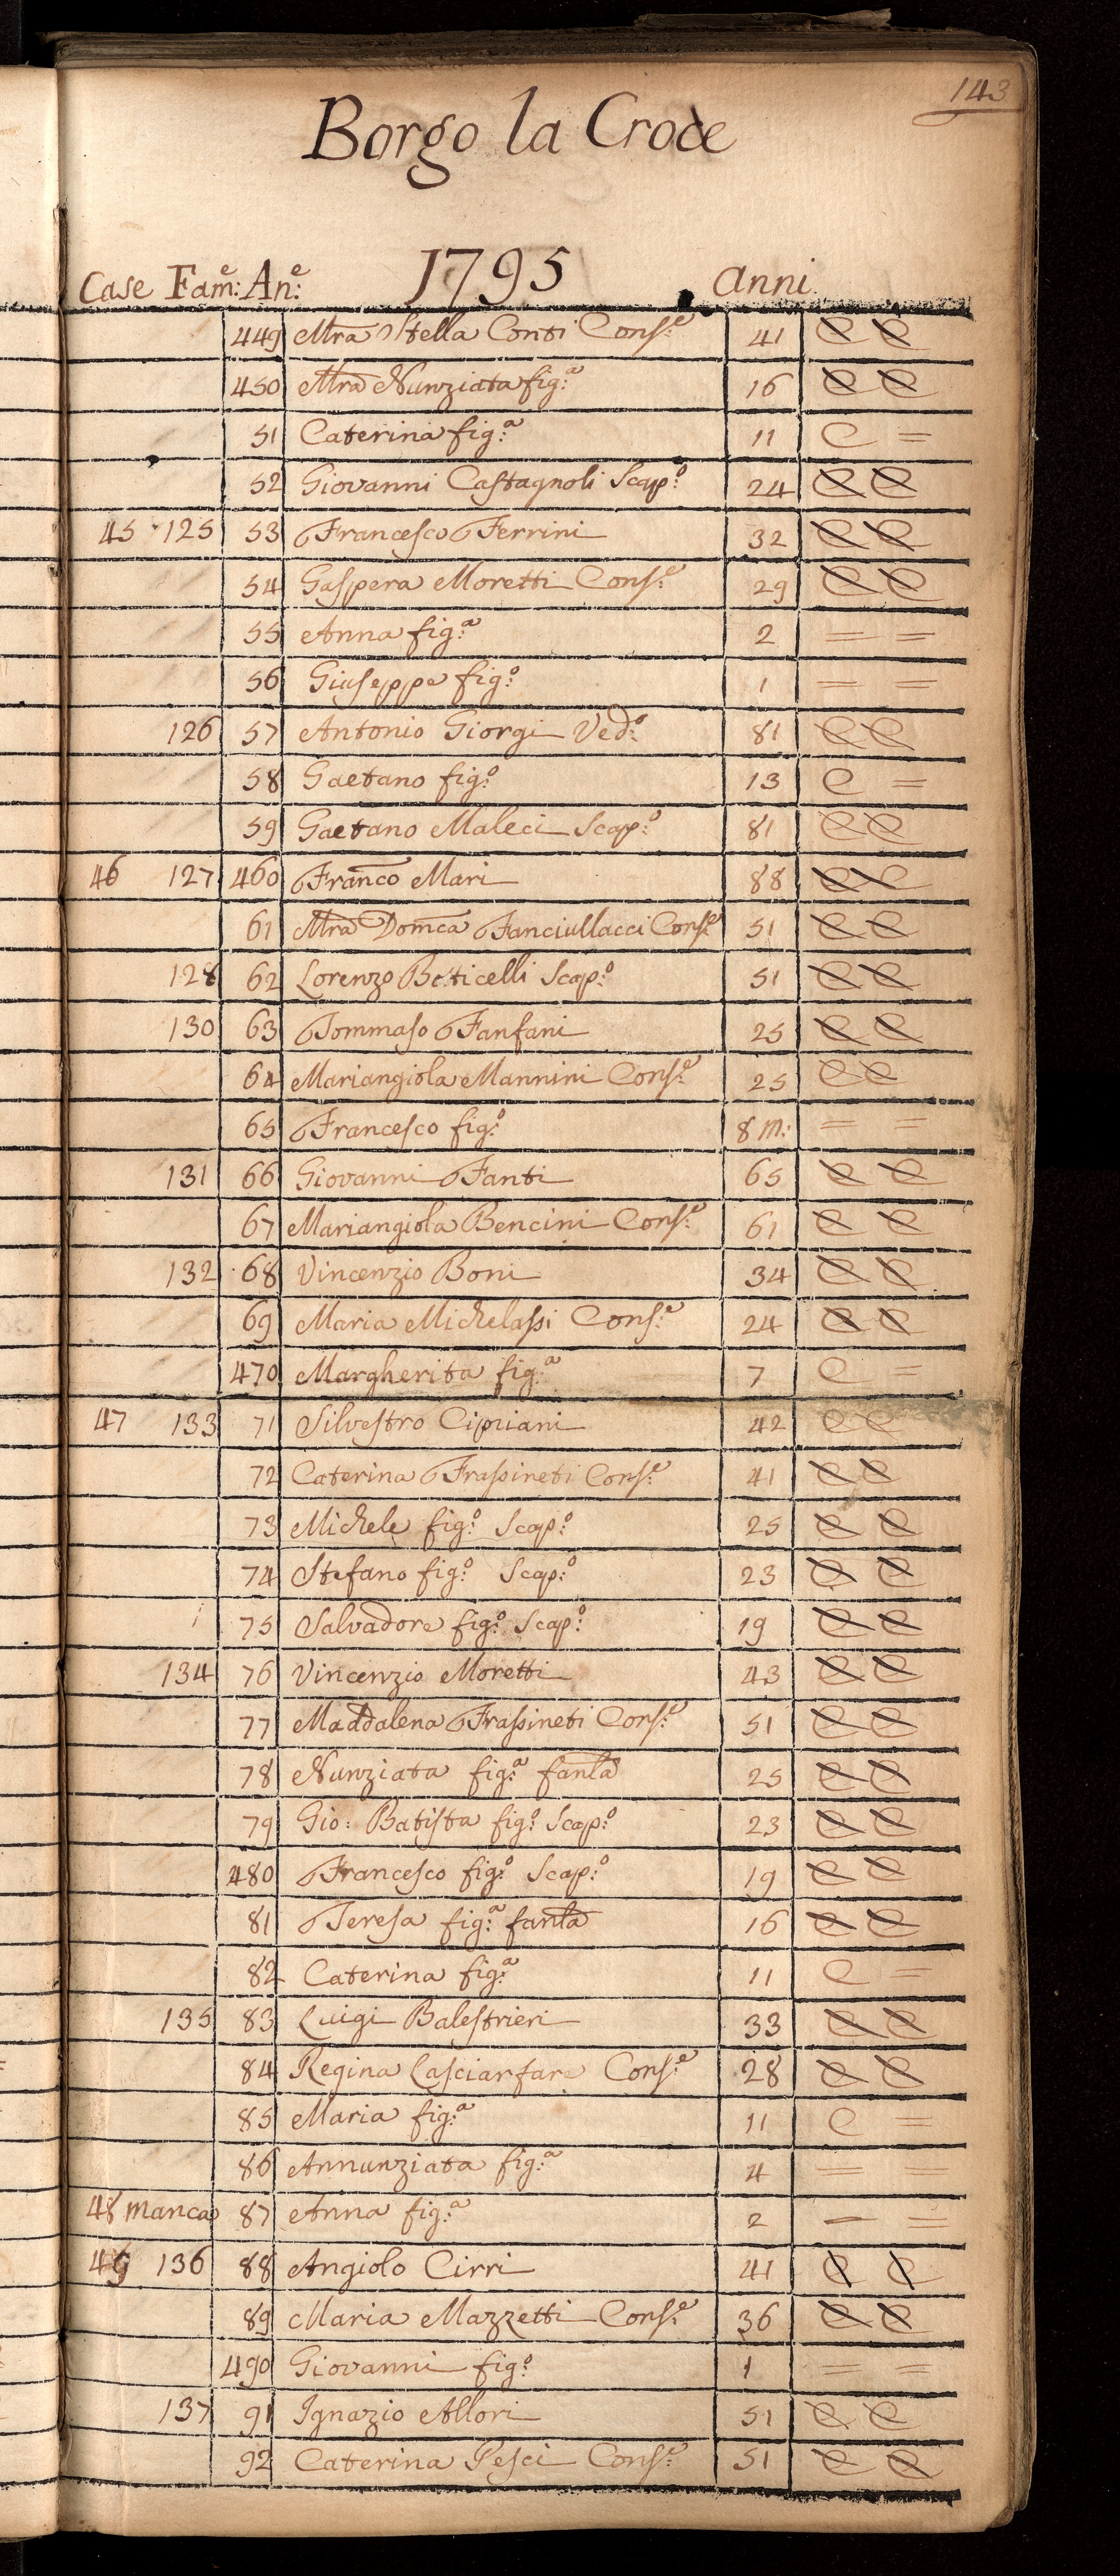 143
Borgo la Croce
1795
Case Fam:e An:e anni
449 Mra Stella Conti Cons:e 41 C C
450 Mra Nunziata fig:a 16 C C
51 Caterina fig:a 11 C =
52 Giovanni Castagnoli Scap:o 24 C C
45 125 53 Francesco Ferrini 32 C C
54 Gaspera Moretti Cons:e 29 C C
55 Anna fig:a 2 = =
56 Giuseppe fig:o 1 = =
126 57 Antonio Giorgi Ved:o 81 C C
58 Gaetano fig:o 13 C =
59 Gaetano Maleci Scap:o 81 C C
46 127 460 Franco Mari 88 C C
61 Mra Domca Fanciullacci Cons:e 51 C C
128 62 Lorenzo Boticelli Scap:o 51 C C
130 63 Tommaso Fanfani 25 C C
64 Mariangiola Mannini Cons:e 25 C C
65 Francesco fig:o 8 m: = =
131 66 Giovanni Fanti 65 C C
67 Mariangiola Bencini Cons:e 61 C C
132 68 Vincenzio Boni 34 C C
69 Maria Michelassi Cons:e 24 C C
470 Margherita fig:a 7 C =
47 133 71 Silvestro Cipriani 42 C C
72 Caterina Frassineti Cons:e 41 C C
73 Michele fig:o Scap:o 25 C C
74 Stefano fig:o Scap:o 23 C C
75 Salvadore fig:o Scap:o 19 C C
134 76 Vincenzio Moretti 43 C C
77 Maddalena Frassineti Cons:e 51 C C
78 Nunziata fig:a fanla 25 C C
79 Gio: Batista fig:o Scap:o 23 C C
480 Francesco fig:o Scap:o 19 C C
81 Teresa fig:a fanla 16 C C
82 Caterina fig:a 11 C =
135 83 Luigi Balestrieri 33 C C
84 Regina Lasciarfare Cons:e 28 C C
85 Maria fig:a 11 C =
86 Annunziata fig:a 4 = =
48 manca 87 Anna fig:a 2 = =
49 136 88 Angiolo Cirri 41 C C
89 Maria Mazzetti Cons:e 36 C C
490 Giovanni fig:o 1 = =
137 91 Ignazio Allori 51 C C
92 Caterina Pesci Cons:e 51 C C